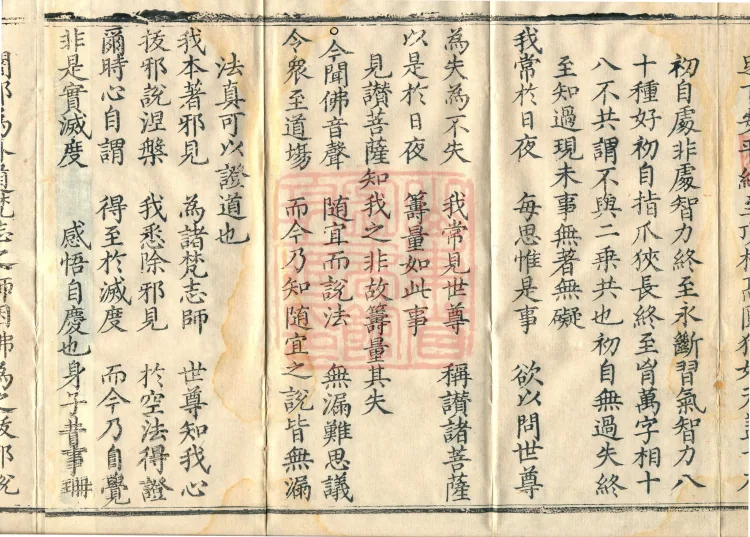 初自處非處智力終至永斷習氣智力八
十種好初自指爪狹長終至胷萬字相十
八不共謂不與二乗共也初自無過失終
至知過現未事無著無礙
我常於日夜 每思惟是事 欲以問世尊
為失為不失 我常見世尊 稱讃諸菩薩
以是於日夜 籌量如此事
見讃菩薩知我之非故籌量其失
今聞佛音聲 随宜而說法 無漏難思議
令衆至道塲 而今乃知随宜之說皆無漏
法真可以證道也
我本著邪見 為諸梵志師 世尊知我心
拔邪說涅槃 我悉除邪見 於空法得證
爾時心自謂 得至於滅度 而今乃自覺
非是實滅度 感悟自慶也身子昔事珊
闍邪為外道梵志之師因佛為之拔邪說